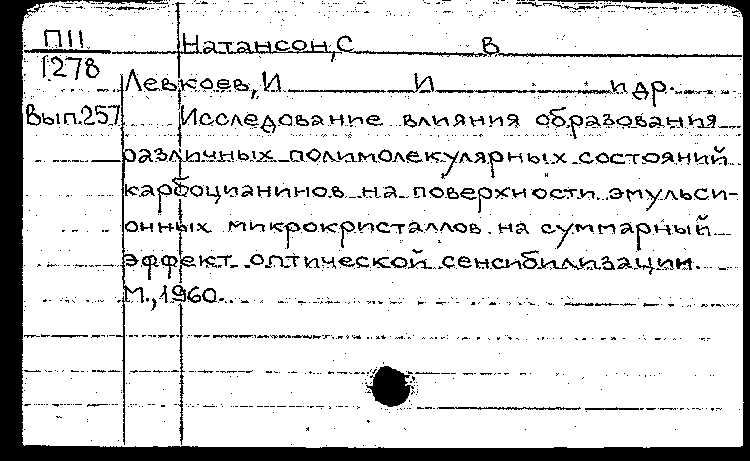 П11
1278
Вып.257
Натансон, С В
Левкоев, И И и др.
Исследование влияния образования
различных полимолекулярных состояний
карбоцианинов на поверхности эмульси-
онных микрокристаллов на суммарный
эффект оптической сенсибилизации.
М., 1960.